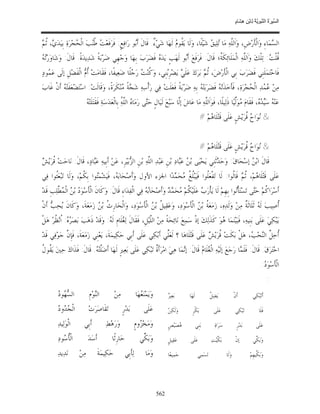 السيرة النبوية لابن هشام
السَّمَاءِ وَالْأَرْضِ، وَاللَّهِ مَا تُلِيقُ شَيْئًا، وَلَا يَقُومُ لَهَا شَيْءٌ. قَالَ أَبُو رَافِعٍ: فَرَفَعْتُ طُنُبَ الْحُجْرَةِ بِيَدَيَّ، ثُمَّ
قُلْتُ: تِلْكَ وَاَللَّهِ الْمَلَائِكَةُ، قَالَ: فَرَفَعَ أَبُو لَهَبٍ يَدَهُ فَضَرَبَ بِهَا وَجْهِي ضَرْبَةً شَدِيدَةً. قَالَ: وَثَاوَرْتُهُ
فَاحْتَمَلَنِي فَضَرَبَ بِي الْأَرْضَ، ثُمَّ بَرَكَ عَلَيَّ يَضْرِبُنِي، وَكُنْتُ رَجُلًا ضَعِيفًا، فَقَامَتْ أُمُّ الْفَضْلِ إلَى عَمُودٍ
مِنْ عُمُدِ الْحُجْرَةِ، فَأَخَذَتْهُ فَضَرَبَتْهُ بِهِ ضَرْبَةً فَلَعَتْ فِي رَأْسِهِ شَجَّةً مُنْكَرَةً، وَقَالَتْ: اسْتَضْعَفْتَهُ أَنْ غَابَ
عَنْهُ سَيِّدُهُ، فَقَامَ مُوَلِّيًا ذَلِيلًا، فَوَاَللَّهِ مَا عَاشَ إلَّا سَبْعَ لَيَالٍ حَتَّى رَمَاهُ اللَّهُ بِالْعَدَسَةِ فَقَتَلَتْهُ
نُوَاحُ قُرَيْشٍ عَلَى قَتْلَاهُمْ
نُوَاحُ قُرَيْشٍ عَلَى قَتْلَاهُمْ
قَالَ ابْنُ إسْحَاقَ: وَحَدَّثَنِي يَحْيَى بْنُ عَبَّادِ بْنِ عَبْدِ اللَّهِ بْنِ الزُّبَيْرِ، عَنْ أَبِيهِ عَبَّادٍ، قَالَ: نَاحَتْ قُرَيْشٌ
عَلَى قَتْلَاهُمْ، ثُمَّ قَالُوا: لَا تَفْعَلُوا فَيَبْلُغَ مُحَمَّدًا الجزء الأول وَأَصْحَابَهُ، فَيَشْمَتُوا بِكُمْ، وَلَا تَبْعَثُوا فِي
أَسْرَاكُمْ حَتَّى تَسْتَأْنُوا بِهِمْ لَا يَأْرَبُ عَلَيْكُمْ مُحَمَّدٌ وَأَصْحَابُهُ فِي الْفِدَاءِ قَالَ: وَكَانَ الْأَسْوَدُ بْنُ الْمُطَّلِبِ قَدْ
أُصِيبَ لَهُ ثَلَاثَةٌ مِنْ وَلَدِهِ، زَمَعَةُ بْنُ الْأَسْوَدِ، وَعَقِيلُ بْنُ الْأَسْوَدِ، وَالْحَارِثُ بْنُ زَمَعَةَ، وَكَانَ يُحِبُّ أَنْ
يَبْكِيَ عَلَى بَنِيهِ، فَبَيْنَمَا هُوَ كَذَلِكَ إذْ سَمِعَ نَائِحَةً مِنْ اللَّيْلِ، فَقَالَ لِغُلَامٍ لَهُ: وَقَدْ ذَهَبَ بَصَرُهُ: اُنْظُرْ هَلْ
أُحِلَّ النَّحْبُ، هَلْ بَكَتْ قُرَيْشٌ عَلَى قَتْلَاهَا ؟ لَعَلِّي أَبْكِي عَلَى أَبِي حَكِيمَةَ، يَعْنِي زَمَعَةَ، فَإِنَّ جَوْفِي قَدْ
احْتَرَقَ. قَالَ: فَلَمَّا رَجَعَ إلَيْهِ الْغُلَامُ قَالَ: إنَّمَا هِيَ امْرَأَةٌ تَبْكِي عَلَى بَعِيرٍ لَهَا أَضَلَّتْهُ. قَالَ: فَذَاكَ حِينَ يَقُولُ
الْأَسْوَدُ:
أَتَبْكِي أَنْ يَضِلَّ لَهَا بَعِيرٌ وَيَمْنَعُهَا مِنْ النَّوْمِ السُّهُودُ
فَلَا تَبْكِي عَلَى بَكْرٍ وَلَكِنْ عَلَى بَدْرٍ تَقَاصَرَتْ الْجُدُودُ
عَلَى بَدْرٍ سَرَاةِ بَنِي هُصَيْصٍ وَمَخْزُومٍ وَرَهْطِ أَبِي الْوَلِيدِ
وَبَكِّي إنْ بَكَّيْتِ عَلَى عَقِيلٍ وَبَكِّي حَارِثًا أَسَدَ الْأُسُودِ
وَبَكِّيهِمْ وَلَا تَسَمِي جَمِيعًا وَمَا لِأَبِي حَكِيمَةَ مِنْ نَدِيدِ
562